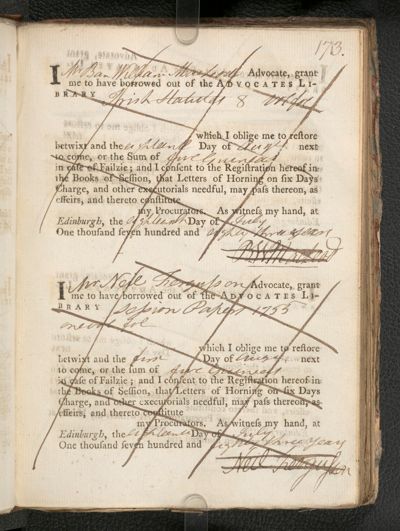 173.
I Mr Ban William Advocate, grant
me to have borrowed out of the ADVOCATES LI-
BRARY Irish Statutes 8
which I oblige me to restore
betwixt and the Day of next
to come, or the Sum of five Guineas
in case of Failzie; and I consent to the Registration hereof in
the Books of Session, that Letters of Horning on six Days
Charge, and other executorials needful, may pass thereon, as
effeirs, and thereto constitute
my Procurators. As witness my hand, at
Edinburgh, the eighteenth Day of July
One thousand seven hundred and eighty three years
I Mr Neil Ferguson Advocate, grant
me to have borrowed out of the ADVOCATES LI-
BRARY Session Papers 1753
one vol
which I oblige me to restore
betwixt and the first Day of next
to come, or the sum of five Guineas
in case of Failzie; and I consent to the Registration hereof in
the Books of Session, that Letters of Horning on six Days
Charge, and other executorials needful, may pass thereon, as
effeirs, and thereto constitute
my Procurators. As witness my hand, at
Edinburgh, the eighteenth Day of July
One thousand seven hundred and eighty three years
Neil Ferguson